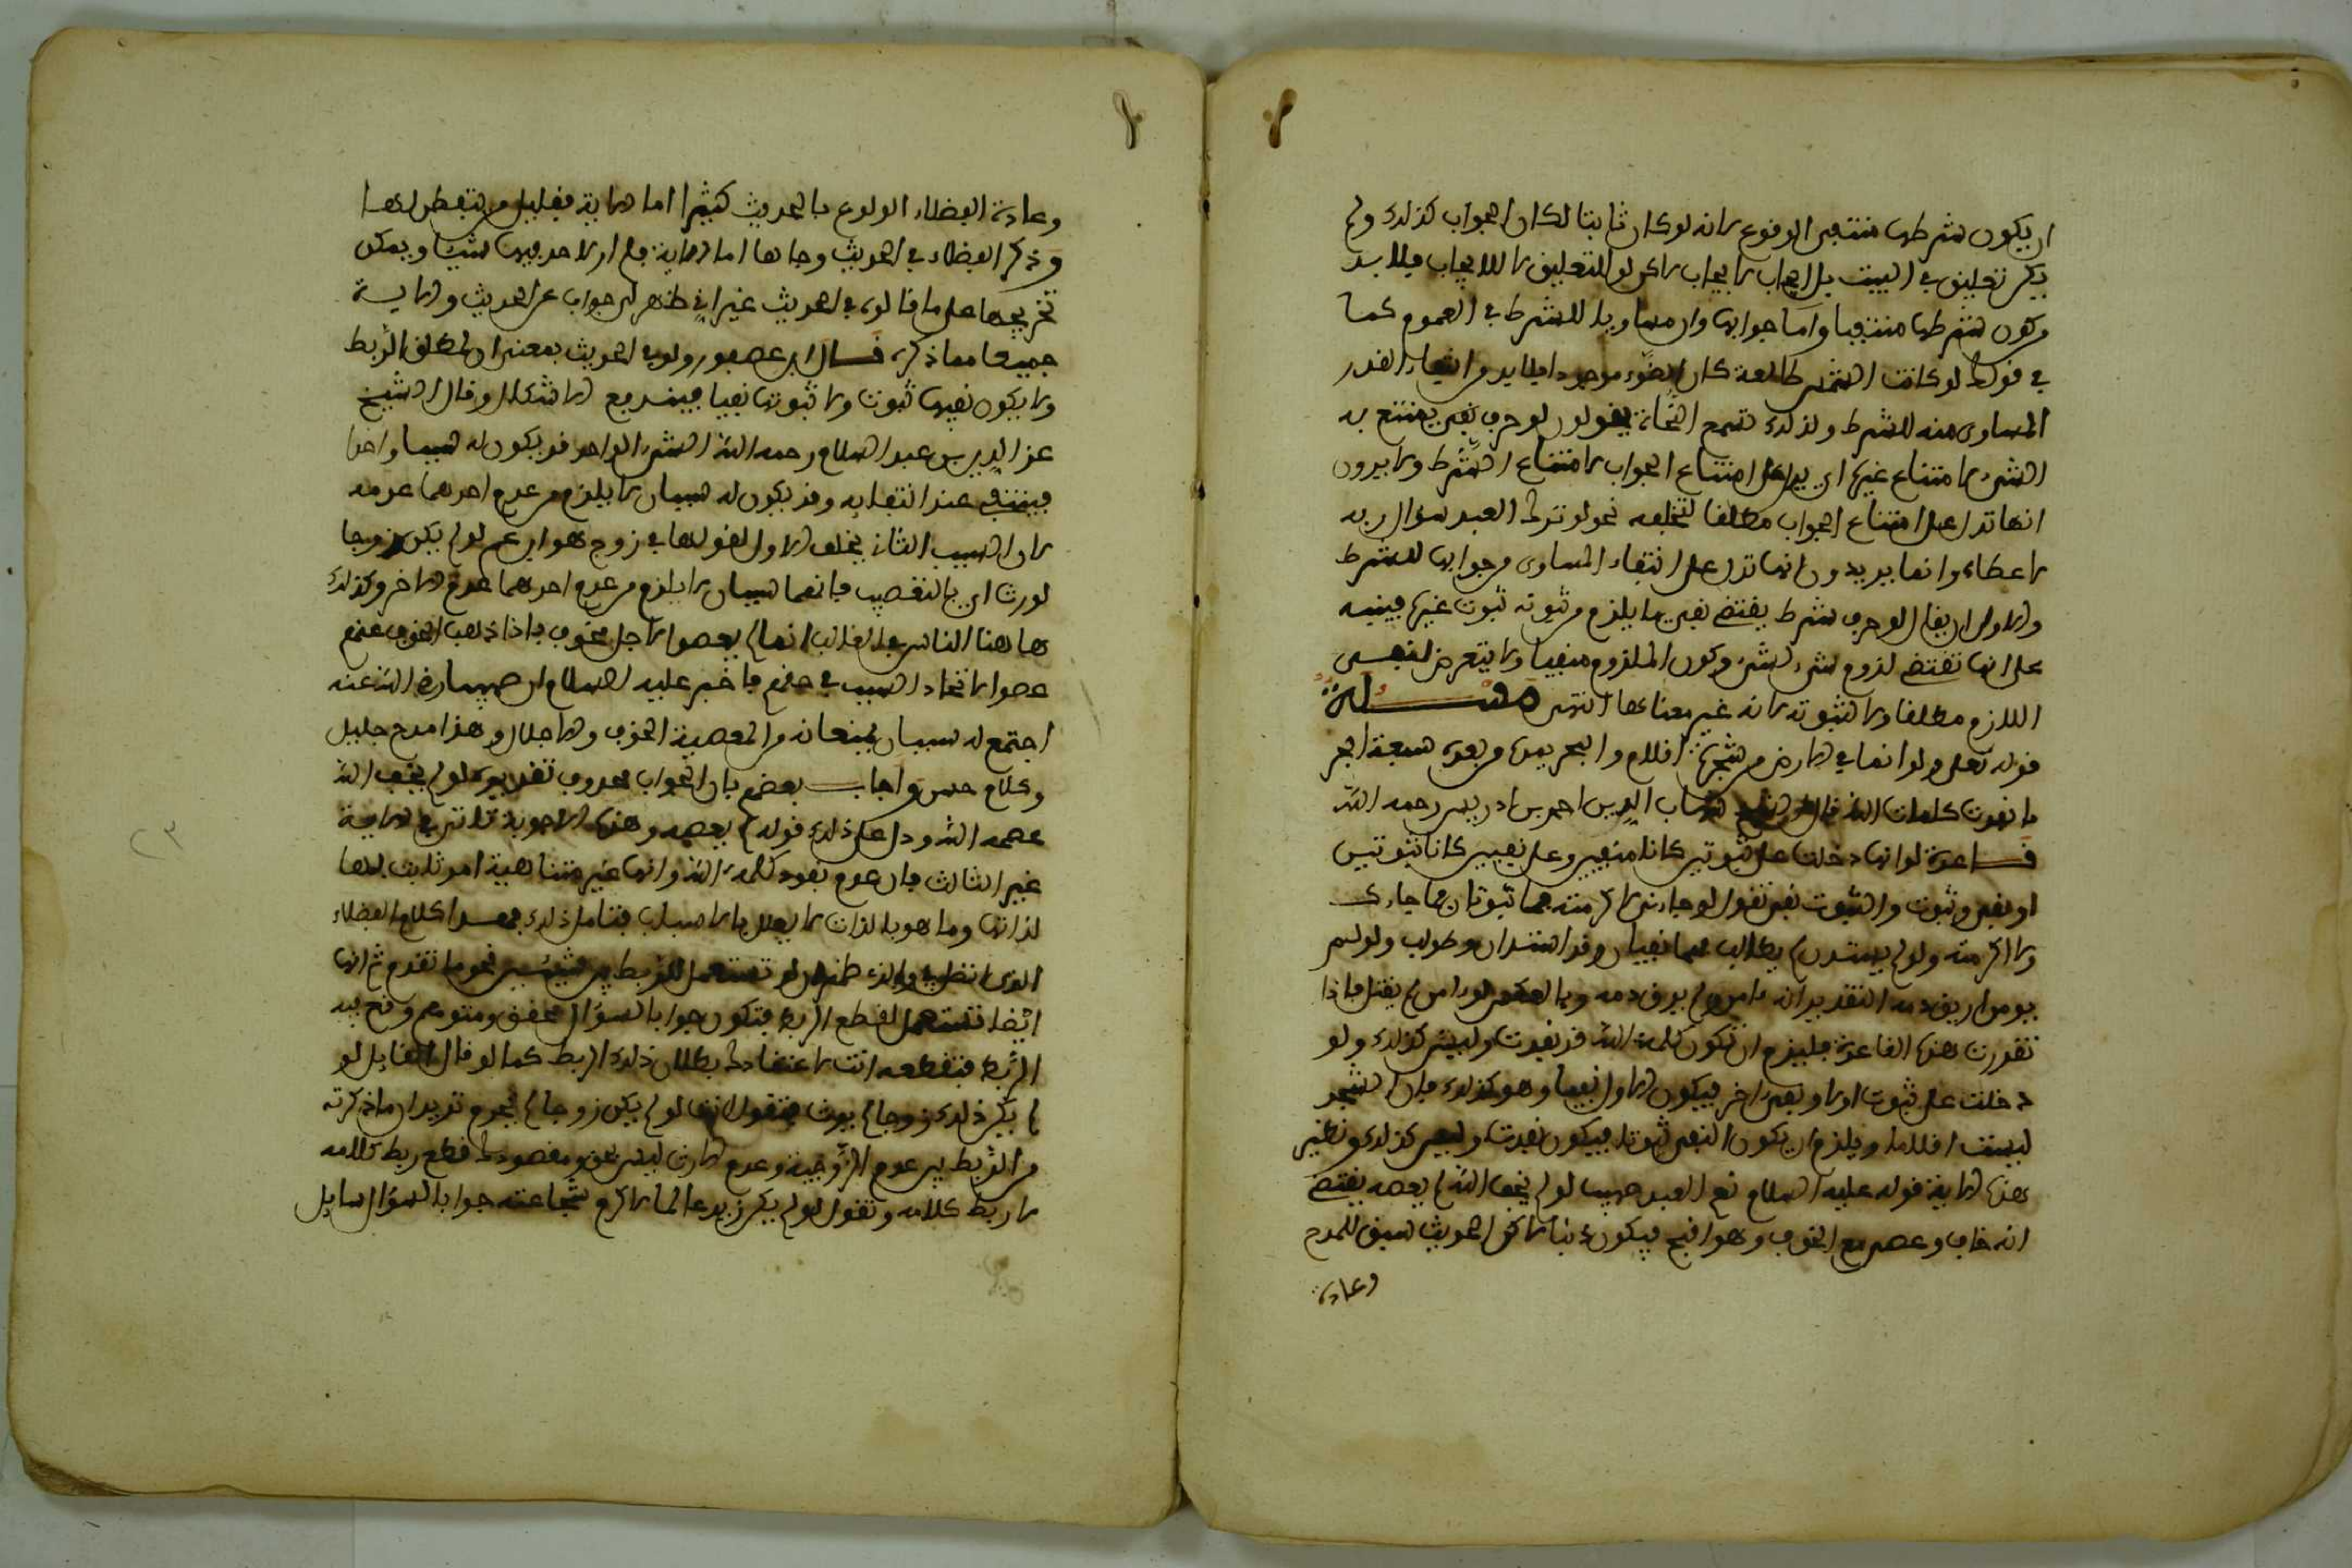 ان يكون شرطها منتفي الوقوع لانه لو كان ثابتا لكان الجواب كذلك ولم
يكن تعليق في البيت بل ايجاب لايجاب لاكن لو للتعليق لا للايجاب فلا بد
من كون شرطها منتفيا واما جوابها وان مساويا للشرط في العموم كما
في قولك لو كانت الشمس طالعة كان الضوء موجودا فلا بد من انتفاء القدر
المساوى منه للشرط ولذلك تسمع النحاة يقولون لو حرف نفي يمتنع به
الشيء لامتناع غيره اي يدل على امتناع الجواب لامتناع الشرط ولا يرون
انها تدل على امتناع الجواب مطلقا لتخلفه نحو لو ترك العبد سؤال ربه
لاعطاه وانما يريدون انها تدل على انتفاء المساوى من جوابها للشرط
والاولى ان يقال لو حرف شرط يقتضي نفي ما يلزم من ثبوته ثبوت غيره فينبه
على انها تقتضي لزوم شيء لشيء وكون الملزوم منفيا ولا يتعرض لنفي
اللازم مطلقا ولا لثبوته لانه غير معناها انتهى مسئلة
قوله تعلى ولو انما في الارض من شجرة اقلام والبحر يمده من بعده سبعة ابحر
ما نفدت كلمات الله قال الشيخ شهاب الدين احمد بن ادريس رحمه الله
قاعدة لو انها دخلت على ثبوتين كانا منفيين وعلى نفيين كانا ثبوتيين
او نفي وثبوت والثبوت نفي تقول لو جاءني لاكرمته فما ثبوتان فما جاءك
ولا اكرمته ولو لم يستدن لم يطالب فهما نفيان وقد استدان وطولب ولو لم
يومن اريق دمه التقدير انه ءامن ولم يرق دمه وبالعكس لو ءامن لم يقتل فاذا
تقررت هذه القاعدة فيلزم ان تكون كلمات الله قد نفدت وليس كذلك ولو
دخلت على ثبوت اولا ونفي اخر فيكون الاول نفيا وهو كذلك فان الشجر
ليست اقلاما ويلزم ان يكون النفي ثبوتا فيكون نفدت وليس كذلك ونظير
هذه الاية قوله عليه السلام نعم العبد صهيب لو لم يخف الله لم يعصه يقتضي
انه خاف وعصى مع الخوف وهو اقبح فيكون ذنبا لاكن الحديث سيق للمدح
وعادة
وعادة الفضلاء الولوع بالحديث كثيرا اما الاية فقليل من يتفطن لها
وذكر الفضلاء في الحديث وجوها اما الاية فلم ار لاحد فيها شيئا ويمكن
تخريجها على ما قالوه في الحديث غير اني ظهر لي جواب عن الحديث والاية
جميعا مما ذكره قال ابن عصفور ولو في الحديث بمعنى ان لمطلق الربط
ولا يكون نفيها ثبوت ولا ثبوتها نفيا فيندفع الاشكال وقال الشيخ
عز الدين بن عبد السلام رحمه الله الشيء الواحد قد يكون له سببا واحدا
فينتفي عند انتفائه وقد يكون له سببان لا يلزم من عدم احدهما عدمه
لان السبب الثاني يخلف الاول لقولها في زوج هو ابن عم لو لم يكن زوجا
لورث اي بالتعصيب فانهما سببان لا يلزم من عدم احدهما عدم الاخر وكذلك
هاهنا الناس في الغالب انما لم يعصوا لاجل الخوف فاذا ذهب الخوف عنهم
عصوا لاتحاد السبب في حقهم فاخبر عليه السلام ان صهيبا رضي الله عنه
اجتمع له سببان يمنعانه من المعصية الخوف والاجلال وهذا مدح جليل
وكلام حسن واجاب بعضهم بان الجواب محذوف تقديره لو لم يخف الله
عصمه الله ودل على ذلك قوله لم يعصه وهذه الاجوبة تتاتى في الاية
غير الثالث فان عدم نفود كلمات الله وانها غير متناهية امر ثابت لها
لذاتها وما هو بالذات لا يعلل بالاسباب فتامل ذلك فهذا كلام الفضلاء
الذي اتصل بي والذي ظهر ان لو تستعمل للربط بين شيئين نحو ما تقدم ثم انها
ايضا تستعمل لقطع الربط فتكون جوابا لسؤال محقق ومتوهم وقع فيه
الربط فتقطعه انت لاعتقادك بطلان ذلك الربط كما لو قال القايل لو
لم يكن ذلك زوجا لم يرث فتقول انت لو لم يكن زوجا لم يحرم تريد ان ما ذكرته
من الربط بين عدم الزوجية وعدم الارث ليس بحق ومقصودك قطع ربط كلامه
لا ربط كلامه وتقول لو لم يكن زيد عالما لاكرم شجاعته جوابا لسؤال سايل